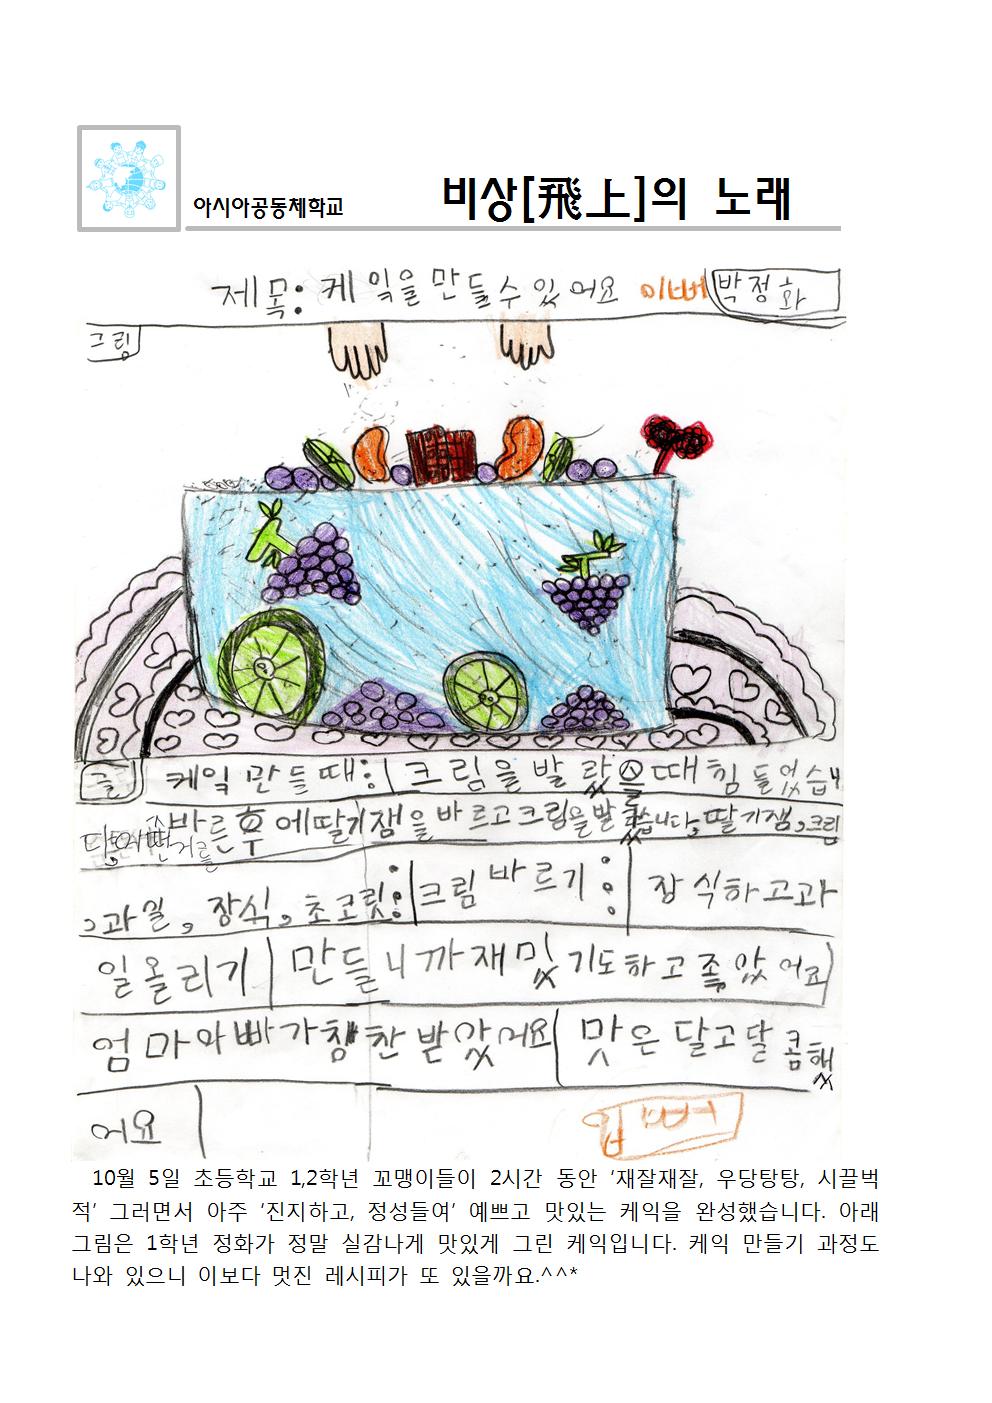 아시아공동체학교
비상[飛上]의 노래
제목: 케익을만들수있어요 이뻐 박정화
그림
글 케익만들때: 크림을발랐을때힘들었습니
바른후에딸기잼을바르고크림을발습니다, 딸기잼,크림
,과일,장식,초코릿: 크림바르기: 장식하고과
일올리기 만들니까재밌기도하고좋았어요
엄마와빠가칭찬받았어요 맛은달고달콤했
어요
10월 5일 초등학교 1,2학년 꼬맹이들이 2시간 동안 ‘재잘재잘, 우당탕탕, 시끌벅
적’ 그러면서 아주 ‘진지하고, 정성들여’ 예쁘고 맛있는 케익을 완성했습니다. 아래
그림은 1학년 정화가 정말 실감나게 맛있게 그린 케익입니다. 케익 만들기 과정도
나와 있으니 이보다 멋진 레시피가 또 있을까요.^^*